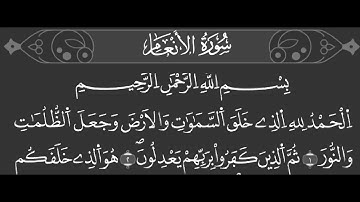 سُورَةُ الأَنْعَامِ
بِسْمِ اِللَّهِ اِلرَّحْمَٰنِ اِلرَّحِيمِ
اِلْحَمْدُ لِلهِ اِلذِے خَلَقَ اَلسَّمَٰوَٰتِ وَالَارْضَ وَجَعَلَ اَلظُّلُمَٰتِ
وَالنُّورَۖ ١ ثُمَّ اَلذِينَ كَفَرُواْ بِرَبِّهِمْ يَعْدِلُونَۖ ٢ هُوَ اَلذِے خَلَقَكُم